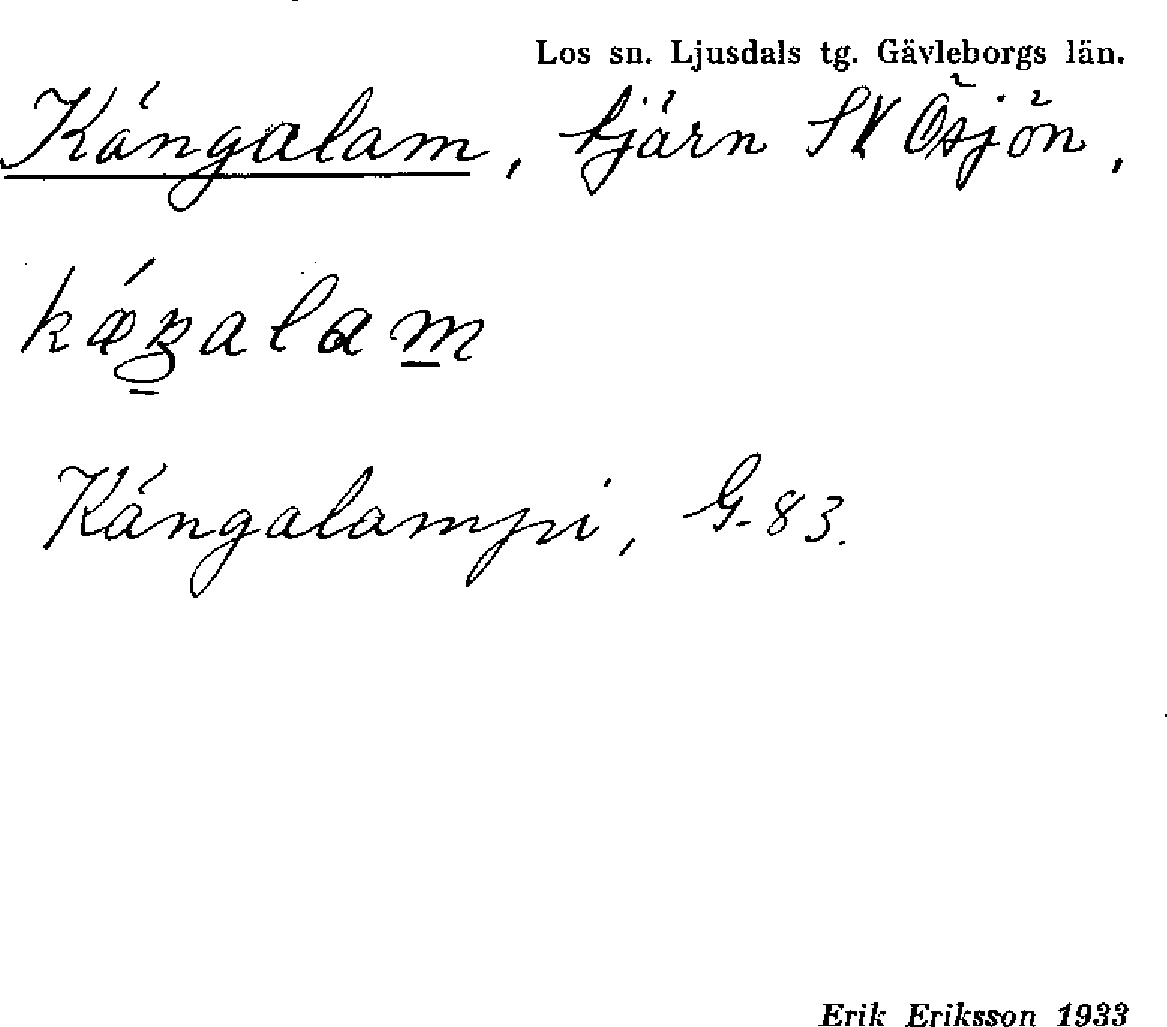 Los sn. Ljusdals tg. Gävleborgs län.
Kängalam, tjärn SV Ösjön,
Kängalampi, G-83.
Erik Eriksson 1933